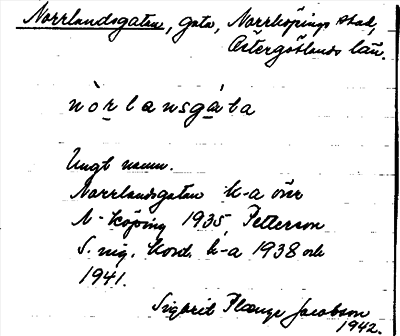 Norrlandsgatan, gata, Norrköpings stad,
Östergötlands län.
nòrlansgàta
Ungt namn.
Norrlandsgatan k-a över
N-köping 1935, Petterson
S. nig. Kord. k-a 1938 och
1941.
Sigbrid Plænge Jacobson
1942.